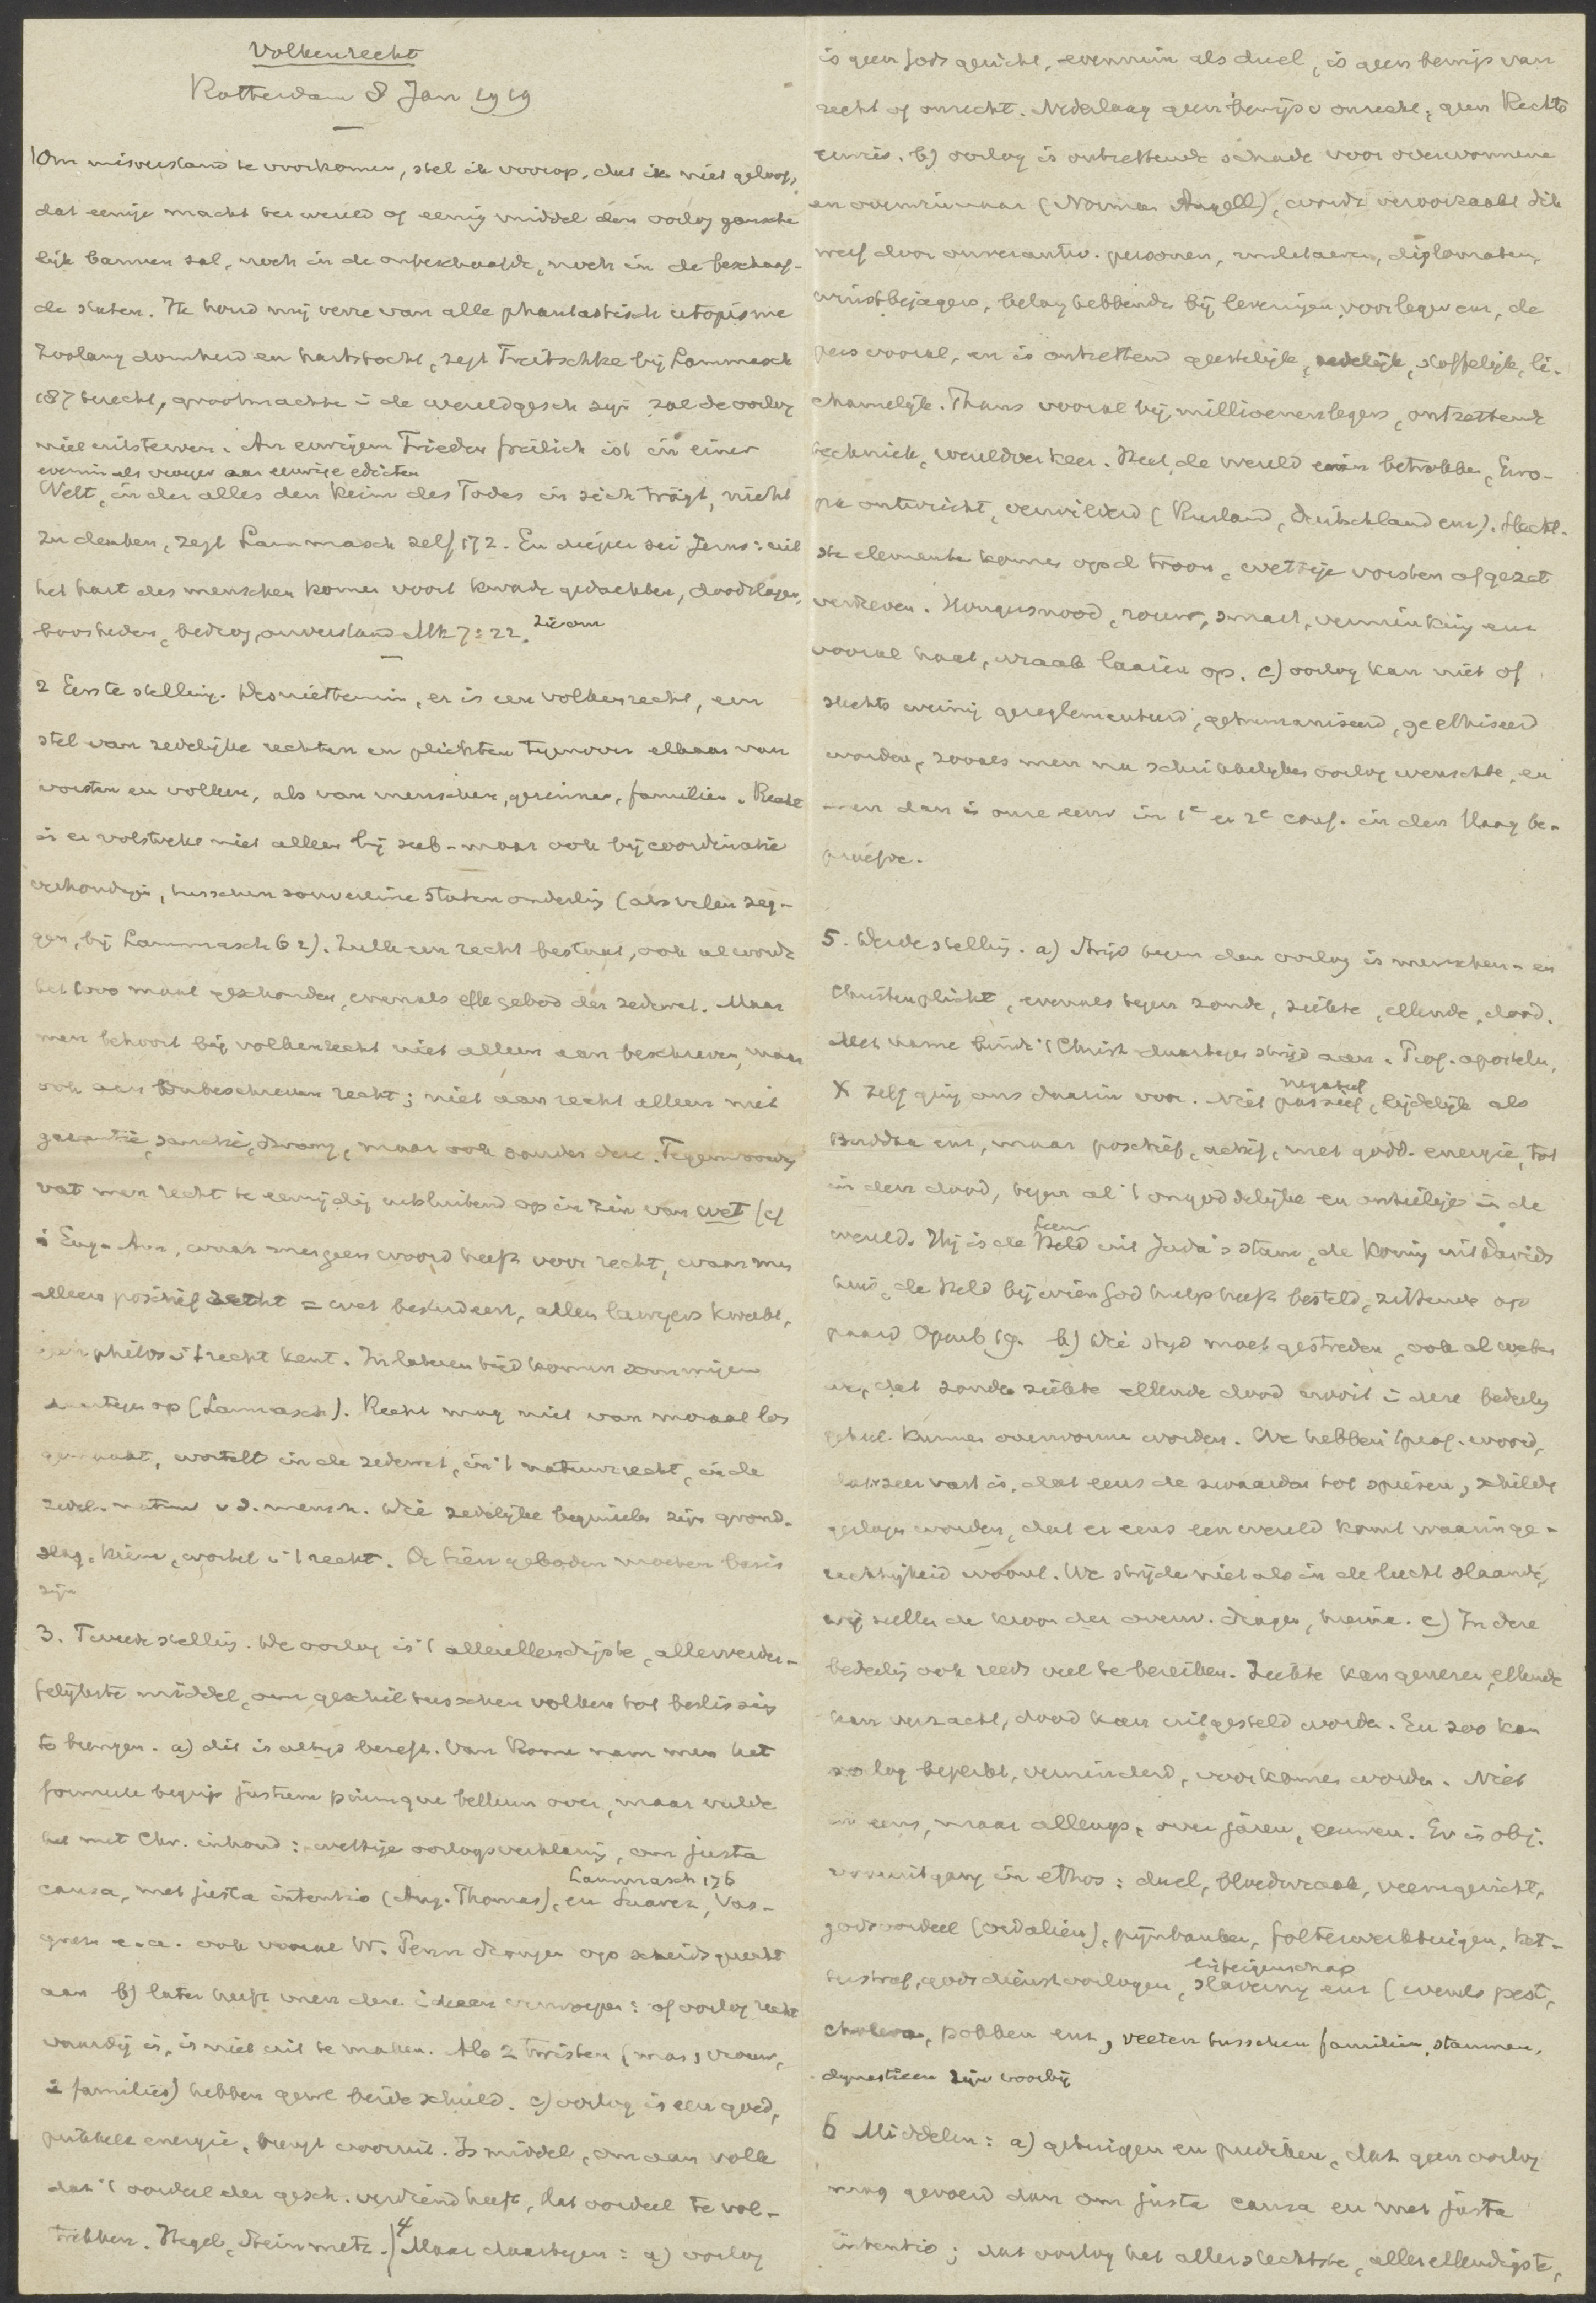 Volkenrecht
Rotterdam 8 Jan 1919
1 Om misverstand te voorkomen, stel ik voorop, dat ik niet geloof,
dat eenige macht ter wereld of eenig middel den oorlog gansche
lijk bannen zal, noch in de onbeschaafde, noch in de beschaaf-
de staten. Ik houd mij verre van alle phantastisch utopisme
Zoolang domheid en hartstocht, zegt Treitschke bij Lammasch
187 terecht, grootmachten i de wereldgesch zijn zal de oorlog
niet uitsterven. An ewigen Frieden freilich ist in einer
evenmin als vroeger aan eeuwige edicten
Welt, in der alles den Keim des Todes in sich trägt, nicht
zu denken, zegt Lammasch zelf 172. En dieper zei Jezus: uit
het hart des menschen komen voort kwade gedachten, doodslagen,
boosheden, bedrog, onverstand Mk 7:22.
2 Eerste stelling. Desniettemin, er is een volkenrecht, een
stel van zedelijke rechten en plichten tegenover elkaar van
vorsten en volken, als van menschen, gezinnen, families. Recht
is er volstrekt niet alleen bij sub- maar ook bij coordinatie
verhoudgn, tusschen souvereine staten onderling (als velen zeg-
gen, bij Lammasch 62). Zulk een recht bestaat, ook al wordt
het 1000 maal geschonden, evenals elk gebod der zedewet. Maar
men behoort bij volkenrecht niet alleen aan beschreven, maar
ook aan onbeschreven recht; niet aan recht alleen met
garantie, sanctie, dwang, maar ook zonder deze. Tegenwoordig
vat men recht te eenzijdig uitsluitend op in zin van wet (cf
i Eng. Am, waar men geen woord heeft voor recht, waar men
alleen positief recht = wet bestudeert, allen lawyers kweekt,
geen philos v 't recht kent. In lateren tijd komen sommigen
daartegen op (Lammasch). Recht mag niet van moraal los
gemaakt, wortelt in de zedewet, in 't natuurrecht, in de
zedel. natuur v d. mensch. Die zedelijke beginselen zijn grond-
slag, kiem, wortel v 't recht. De tien geboden moeten basis
zijn
3. Tweede stelling. De oorlog is 't allerellendigste, allerverder-
felijkste middel, om geschil tusschen volken tot beslissing
te brengen. a) dit is altijd beseft. Van Rome nam men het
formeele begrip justum piumque bellum over, maar vulde
het met Chr. inhoud: wettige oorlogsverklaring, om justa
Lammasch 176
causa, met justa intentio (Aug. Thomas), en Suarez, Vas-
quez e.a. ook vooral W. Penn drongen op scheidsgerecht
aan b) later heeft men deze ideeen verworpen: of oorlog recht
vaardig is, is niet uit te maken. Als 2 twisten (man, vrouw,
2 families) hebben gewl beide schuld. c) oorlog is een goed,
prikkelt energie, brengt vooruit. Is middel, om aan volk
dat 't oordeel der gesch. verdiend heeft, dat oordeel te vol-
trekken. Hegel, Steinmetz.) 4 Maar daartegen: a) oorlog
is geen Godsgericht, evenmin als duel, is geen bewijs van
recht of onrecht. Nederlaag geen bewijs v onrecht, geen Rechts
b) oorlog is ontzettende schade voor overwonnene
en overwinnaar (Norman Angell), wordt veroorzaakt dik
werf door onverantw. personen, militairen, diplomaten,
winstbejagers, belanghebbenden bij leveringen voor leger enz, de
pers vooral, en is ontzettend geestelijk, zedelijk, stoffelijk, li-
chamelijk. Thans vooral bij millioenenlegers, ontzettende
techniek, wereldverkeer. Heel de wereld erin betrokken, Euro-
pa ontwricht, verwilderd (Rusland, Duitschland enz). Slecht-
ste elementen komen op d troon, wettige vorsten afgezet
verdreven. Hongersnood, rouw, smart, verminking enz
vooral haat, wraak laaien op. c) oorlog kan niet of
slechts weinig gereglementeerd, gehumaniseerd, geethiseerd
worden, zooals men nu schrikkelijken oorlog wenschte, en
men dan is onze eeuw in 1e en 2e conf. in den Haag be-
proefde.
5. Derde stelling. a) Strijd tegen den oorlog is menschen- en
Christenplicht, evenals tegen zonde, ziekte, ellende, dood.
Met name bindt 't Christ daartegen strijd aan. Prof. apostelen,
negatief
X zelf ging ons daarin voor. Niet passief, lijdelijk als
Buddha enz, maar positief, actief, met godd. energie, tot
in den dood, tegen al 't ongoddelijke en onheilige in de
Leeuw
wereld. Hij is de Held uit Juda's stam, de Koning uit Davids
huis, de Held bij wien God hulp heeft besteld, zittende op
paard Openb 19. b) Die strijd moet gestreden, ook al weten
we, dat zonde ziekte ellende dood nooit i deze bedeeling
geheel kunnen overwonnen worden. We hebben 't prof. woord,
dat zeer vast is, dat eens de zwaarden tot spiesen, schilden
geslagen worden, dat er eens een wereld komt waarin ge-
rechtigheid woont. We strijden niet als in de lucht slaande,
wij zullen de kroon der overw. dragen, hierna. c) In deze
bedeeling ook reeds veel te bereiken. Ziekte kan genezen, ellende
kan verzacht, dood kan uitgesteld worden. En zoo kan
oorlog beperkt, verminderd, voorkomen worden. Niet
in eens, maar allengs, over jaren, eeuwen. Er is obj.
vooruitgang in ethos: duel, bloedwraak, veemgericht,
godsoordeel (ordaliën), pijnbanken, folterwerktuigen, ket-
lijfeigenschap
terstraf, godsdienstoorlogen, slavernij enz (evenals pest,
cholera, pokken enz, veeten tusschen familien, stammen,
dynastieen zijn voorbij
6 Middelen: a) getuigen en prediken, dat geen oorlog
mag gevoerd dan om justa causa en met justa
intentio; dat oorlog het allerslechtste, allerellendigste,